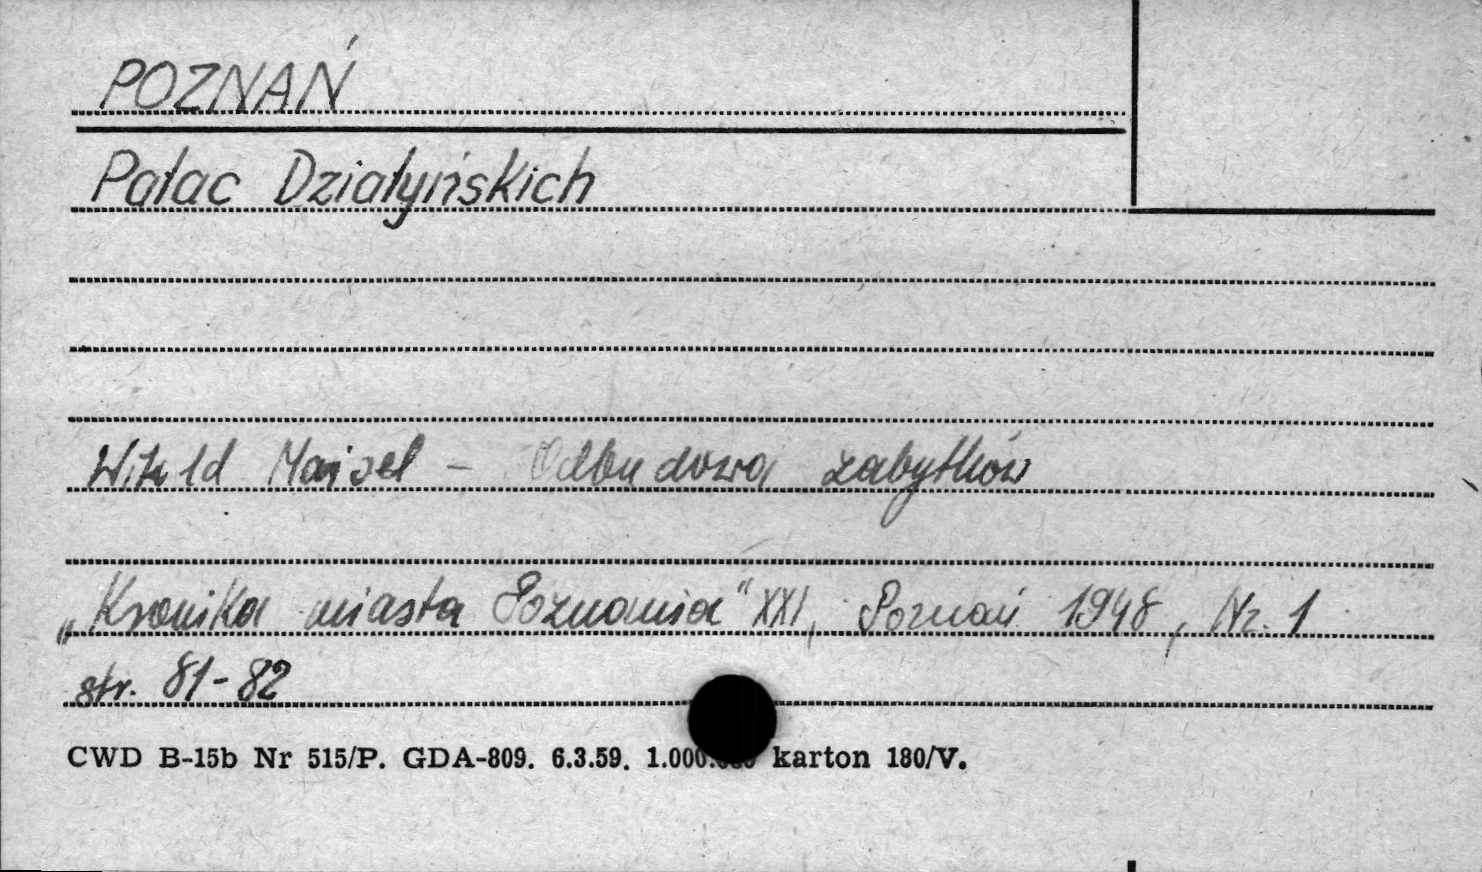 POZNAŃ
Pałac Działyńskich
Witold Maisel - Odbudowa zabytków
„Kronika miasta Poznania" XXI, Poznań 1948, Nr. 1
str. 81-82
CWD B-15b Nr 515/P. GDA-809. 6.3.59. 1.000.000 karton 180/V.